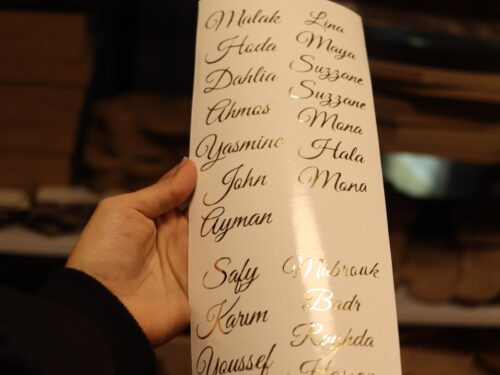 Malak
Hoda
Dahlia
Ahmos
Yasmine
John
Ayman
Safy
Karim
Youssef
Lina
Maya
Suzzane
Suzzane
Mona
Hala
Mona
Mabrouk
Badr